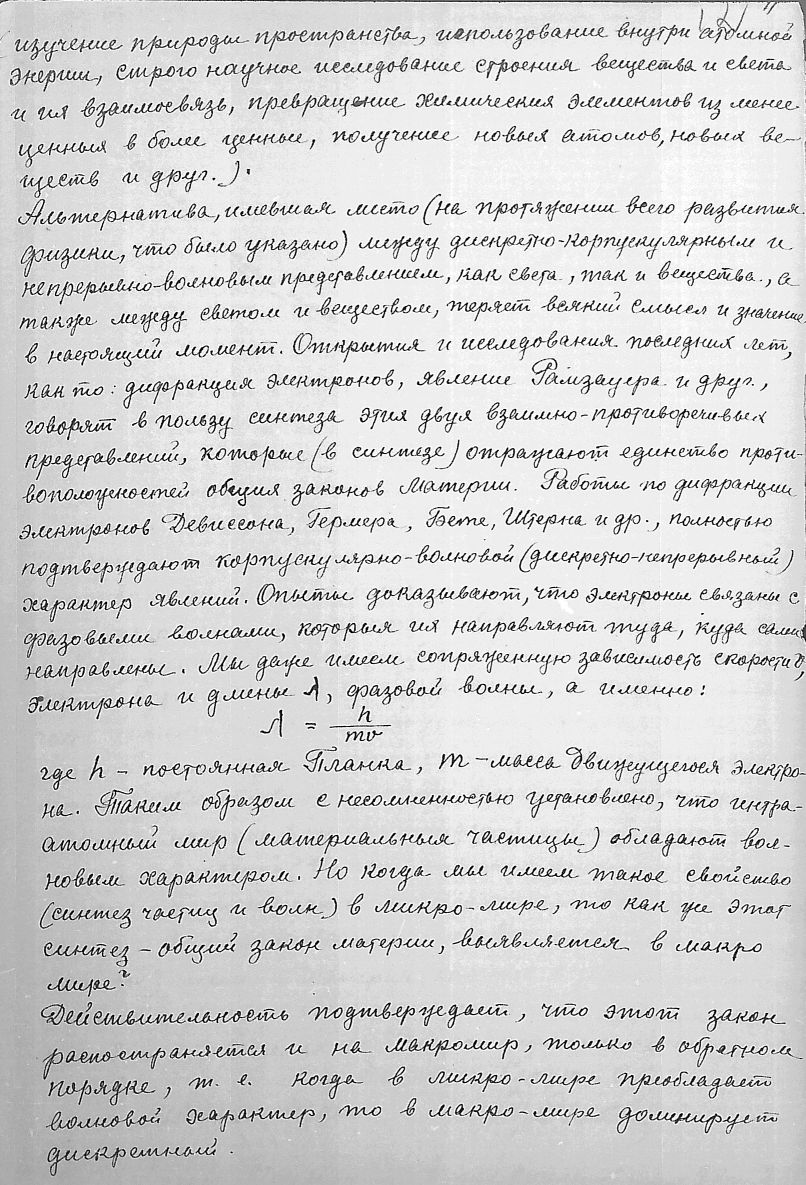 изучение природы пространства, использование внутри атомной
энергии, строго научное исследование строения вещества и света
и ия взаимосвязь, превращение химическия элементов из менее
ценныя в более ценные, получение новыя атомов, новыя ве-
ществ и друг.).
Альтернатива, имевшая место (на протяжении всего развития
физики, что было указано) между дискретно-корпускулярным и
непрерывно-волновым представлением, как света, так и вещества, а
также между светом и веществом, теряет всякий смысл и значение
в настоящий момент. Открытия и исследования последних лет,
как то: дифракция электронов, явление Рамзауера и друг.,
говорят в пользу синтеза этия двуя взаимно-противоречивых
представлений, которые (в синтезе) отражают единство проти-
воположностей общия законов материи. Работы по дифракции
электронов Девиссона, Гермера, Бете, Штерна и др., полностью
подтверждают корпускулярно-волновой (дискретно-непрерывный)
характер явлений. Опыты доказывают, что электроны связаны с
фазовыми волнами, которыя ия направляют туда, куда сами
направлены. Мы даже имеем сопряженную зависимость скорости v,
электрона и длины λ, фазовой волны, а именно:
λ = h/mv
где h – постоянная Планка, m – масса движущегося электро-
на. Таким образом с несомненностью установлено, что интра-
атомный мир (материальныя частицы) обладают вол-
новым характером. Но когда мы имеем такое свойство
(синтез частиц и волн) в микро-мире, то как же этот
синтез – общий закон материи, выявляется в макро
мире?
Действительность подтверждает, что этот закон
распостраняется и на макромир, только в обратном
порядке, т. е. когда в микро-мире преобладает
волновой характер, то в макро-мире доминирует
дискретный.